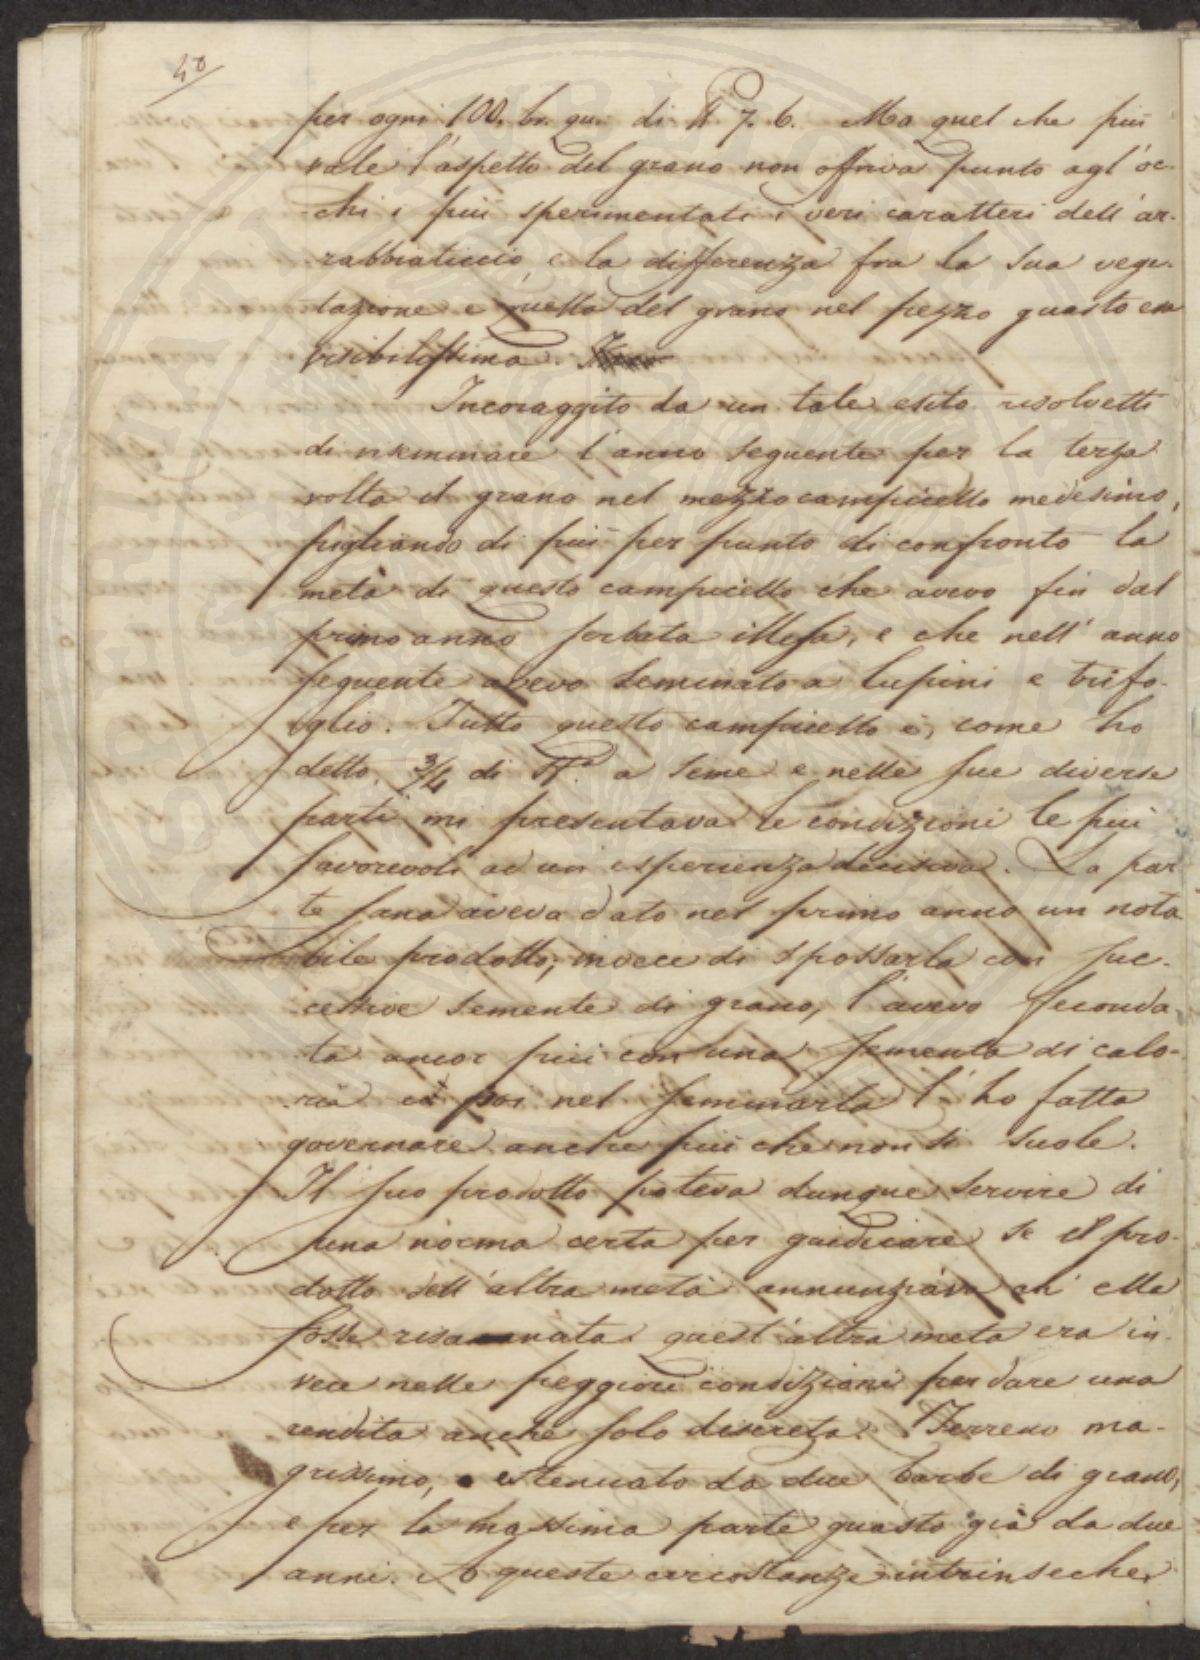 40
per ogni 100. br. qu. di ℔ 7. 6. Ma quel che più
vale l'aspetto del grano non offriva punto agl'oc-
chi i più sperimentati i veri caratteri dell'ar-
rabbiaticcio, e la differenza fra la sua vege-
tazione e quella del grano nel pezzo guasto era
visibilissima.
Incoraggito da un tale esito risolvetti
di riseminare l'anno seguente per la terza
volta il grano nel mezzo campicello medesimo,
pigliando di più per punto di confronto la
metà di questo campicello che avevo fin dal
primo anno serbata illesa, e che nell'anno
seguente avevo seminato a lupini e trifo-
glio. Tutto questo campicello è, come ho
detto, 3/4 di St.ª a seme e nelle sue diverse
parti mi presentava le condizioni le più
favorevoli ad un esperienza decisiva. La par
te sana aveva dato nel primo anno un nota
bile prodotto; invece di spossarla con suc-
cessive semente di grano, l'avevo feconda-
ta ancor più con una sementa di calo-
ria e poi nel seminarla l'ho fatta
governare anche più che non si suole.
Il suo prodotto poteva dunque servire di
una norma certa per giudicare se il pro-
dotto dell'altra metà annunziava ch'ella
fosse risanata. quest'altra metà era in-
vece nelle peggiori condizioni per dare una
rendita anche solo discreta. Terreno ma-
grissimo, estenuato da due barbe di grano,
e per la massima parte guasto già da due
anni. A queste circostanze intrinseche,